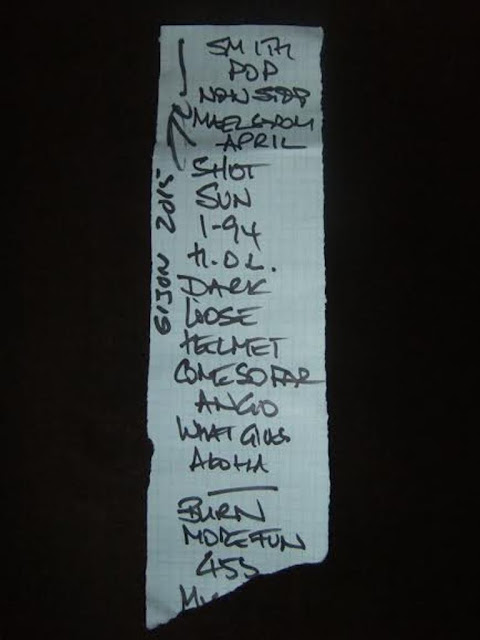 SMITH
POP
NON STOP
MAELSTROM
APRIL
SHOT
SUN
1-94
H.O.L.
DARK
LOOSE
HELMET
COME SO FAR
ANGLO
WHAT GIVES
ALOHA
BURN
MORE FUN
455
GIJON 2015